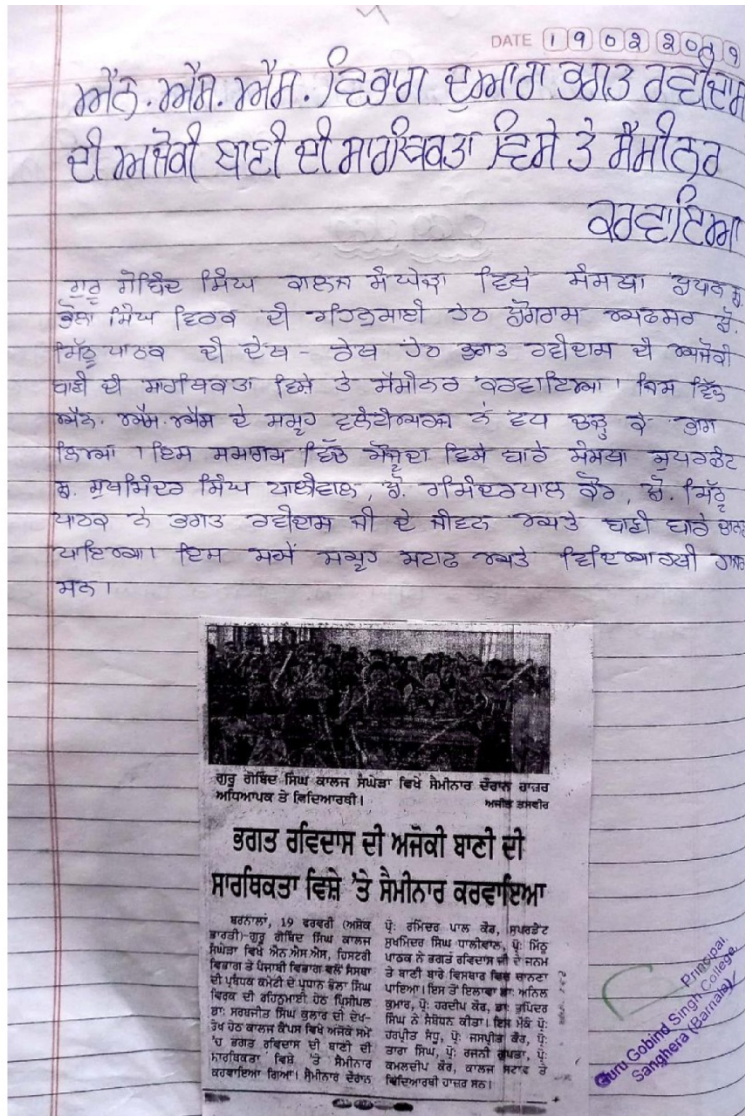 DATE 19 02 20
ਐਨ. ਐਸ. ਐਸ. ਵਿਭਾਗ ਦੁਆਰਾ ਭਗਤ ਰਵੀਦਾਸ
ਦੀ ਅਜੋਕੀ ਬਾਣੀ ਦੀ ਸਾਰਥਿਕਤਾ ਵਿਸੇ ਤੇ ਸੈਮੀਨਰ
ਕਰਵਾਇਆ
ਗੁਰੂ ਗੋਬਿੰਦ ਸਿੰਘ ਕਾਲਜ ਸੰਘੇੜਾ ਵਿਖੇ ਸੰਸਥਾ ਪ੍ਰਧਾਨ
ਭੋਲਾ ਸਿੰਘ ਵਿਰਕ ਦੀ ਰਹਿਨੁਮਾਈ ਹੇਠ ਪ੍ਰੋਗਰਾਮ ਅਫਸਰ ਪ੍ਰੋ.
ਮਿੱਠੂ ਪਾਠਕ ਦੀ ਦੇਖ - ਰੇਖ ਹੇਠ ਭਗਤ ਰਵੀਦਾਸ ਦੀ ਅਜੋਕੀ
ਬਾਣੀ ਦੀ ਸਾਰਥਿਕਤਾ ਵਿਸ਼ੇ ਤੇ ਸੈਮੀਨਰ ਕਰਵਾਇਆ। ਜਿਸ ਵਿੱਚ
ਐਨ. ਐਸ. ਐਸ ਦੇ ਸਮੂਹ ਵਲੰਟੀਅਰਜ ਨੇ ਵਧ ਚੜ੍ਹ ਕੇ ਭਾਗ
ਲਿਆ। ਇਸ ਸਮਾਗਮ ਵਿੱਚ ਮੌਜੂਦਾ ਵਿਸੇ ਬਾਰੇ ਸੰਸਥਾ ਸੁਪਰਡੈਂਟ
ਸ. ਸੁਖਮਿੰਦਰ ਸਿੰਘ ਧਾਲੀਵਾਲ, ਪ੍ਰੋ. ਰਮਿੰਦਰਪਾਲ ਕੌਰ, ਪ੍ਰੋ. ਮਿੱਠੂ
ਪਾਠਕ ਨੇ ਭਗਤ ਰਵੀਦਾਸ ਜੀ ਦੇ ਜੀਵਨ ਅਤੇ ਬਾਣੀ ਬਾਰੇ
ਪਾਇਆ। ਇਸ ਸਮੇਂ ਸਮੂਹ ਸਟਾਫ ਅਤੇ ਵਿਦਿਆਰਥੀ
ਸਨ।
ਗੁਰੂ ਗੋਬਿੰਦ ਸਿੰਘ ਕਾਲਜ ਸੰਘੇੜਾ ਵਿਖੇ ਸੈਮੀਨਾਰ ਦੌਰਾਨ ਹਾਜ਼ਰ
ਅਧਿਆਪਕ ਤੇ ਵਿਦਿਆਰਥੀ। ਅਜੀਤ ਤਸਵੀਰ
ਭਗਤ ਰਵਿਦਾਸ ਦੀ ਅਜੋਕੀ ਬਾਣੀ ਦੀ
ਸਾਰਥਿਕਤਾ ਵਿਸ਼ੇ 'ਤੇ ਸੈਮੀਨਾਰ ਕਰਵਾਇਆ
ਬਰਨਾਲਾ, 19 ਫਰਵਰੀ (ਅਸ਼ੋਕ
ਭਾਰਤੀ)-ਗੁਰੂ ਗੋਬਿੰਦ ਸਿੰਘ ਕਾਲਜ
ਸੰਘੇੜਾ ਵਿਖੇ ਐਨ.ਐਸ.ਐਸ, ਹਿਸਟਰੀ
ਵਿਭਾਗ ਤੇ ਪੰਜਾਬੀ ਵਿਭਾਗ ਵਲੋਂ ਸੰਸਥਾ
ਦੀ ਪ੍ਰਬੰਧਕ ਕਮੇਟੀ ਦੇ ਪ੍ਰਧਾਨ ਭੋਲਾ ਸਿੰਘ
ਵਿਰਕ ਦੀ ਰਹਿਨੁਮਾਈ ਹੇਠ ਪ੍ਰਿੰਸੀਪਲ
ਡਾ: ਸਰਬਜੀਤ ਸਿੰਘ ਕੁਲਾਰ ਦੀ ਦੇਖ-
ਰੇਖ ਹੇਠ ਕਾਲਜ ਕੈਂਪਸ ਵਿਖੇ ਅਜੋਕੇ ਸਮੇਂ
'ਚ ਭਗਤ ਰਵਿਦਾਸ ਦੀ ਬਾਣੀ ਦੀ
ਸਾਰਥਿਕਤਾ ਵਿਸ਼ੇ 'ਤੇ ਸੈਮੀਨਾਰ
ਕਰਵਾਇਆ ਗਿਆ। ਸੈਮੀਨਾਰ ਦੌਰਾਨ
ਪ੍ਰੋ: ਰਮਿੰਦਰ ਪਾਲ ਕੌਰ, ਸੁਪਰਡੈਂਟ
ਸੁਖਮਿੰਦਰ ਸਿੰਘ ਧਾਲੀਵਾਲ, ਪ੍ਰੋ: ਮਿੱਠੂ
ਪਾਠਕ ਨੇ ਭਗਤ ਰਵਿਦਾਸ ਜੀ ਦੇ ਜਨਮ
ਤੇ ਬਾਣੀ ਬਾਰੇ ਵਿਸਥਾਰ ਵਿਚ ਚਾਨਣਾ
ਪਾਇਆ। ਇਸ ਤੋਂ ਇਲਾਵਾ ਡਾ: ਅਨਿਲ
ਕੁਮਾਰ, ਪ੍ਰੋ: ਹਰਦੀਪ ਕੌਰ, ਡਾ: ਭੁਪਿੰਦਰ
ਸਿੰਘ ਨੇ ਸੰਬੋਧਨ ਕੀਤਾ। ਇਸ ਮੌਕੇ ਪ੍ਰੋ:
ਹਰਪ੍ਰੀਤ ਸੰਧੂ, ਪ੍ਰੋ: ਜਸਪ੍ਰੀਤ ਕੌਰ, ਪ੍ਰੋ:
ਤਾਰਾ ਸਿੰਘ, ਪ੍ਰੋ: ਰਜਨੀ ਗੁਪਤਾ, ਪ੍ਰੋ:
ਕਮਲਦੀਪ ਕੌਰ, ਕਾਲਜ ਸਟਾਫ ਤੇ
ਵਿਦਿਆਰਥੀ ਹਾਜ਼ਰ ਸਨ।
Principal
Guru Gobind Singh College
Sanghera (Barnala)